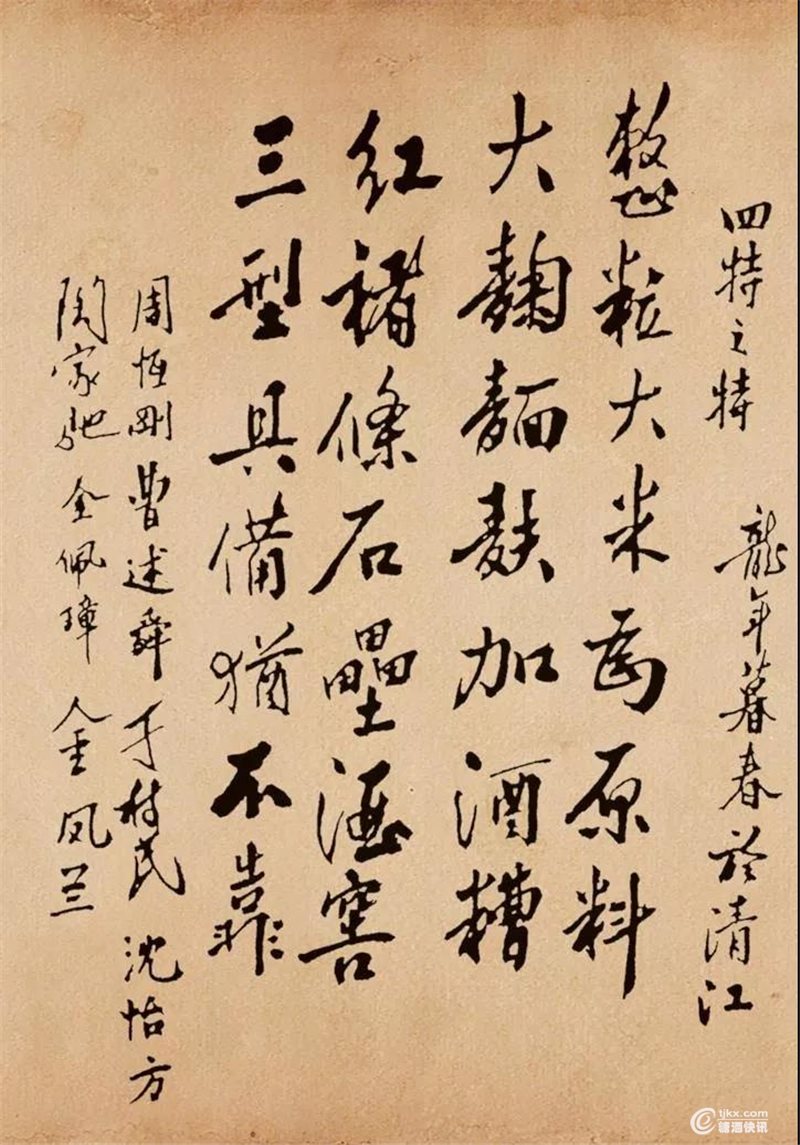 四特之特 龍年暮春於清江
整粒大米为原料
大麯麵麩加酒糟
红褚條石壘酒窖
三型具備猶不靠
周恒刚 曹述舜 于树民 沈怡方
陶家驰 全佩璋 金凤兰
tjkx.com
糖酒快讯